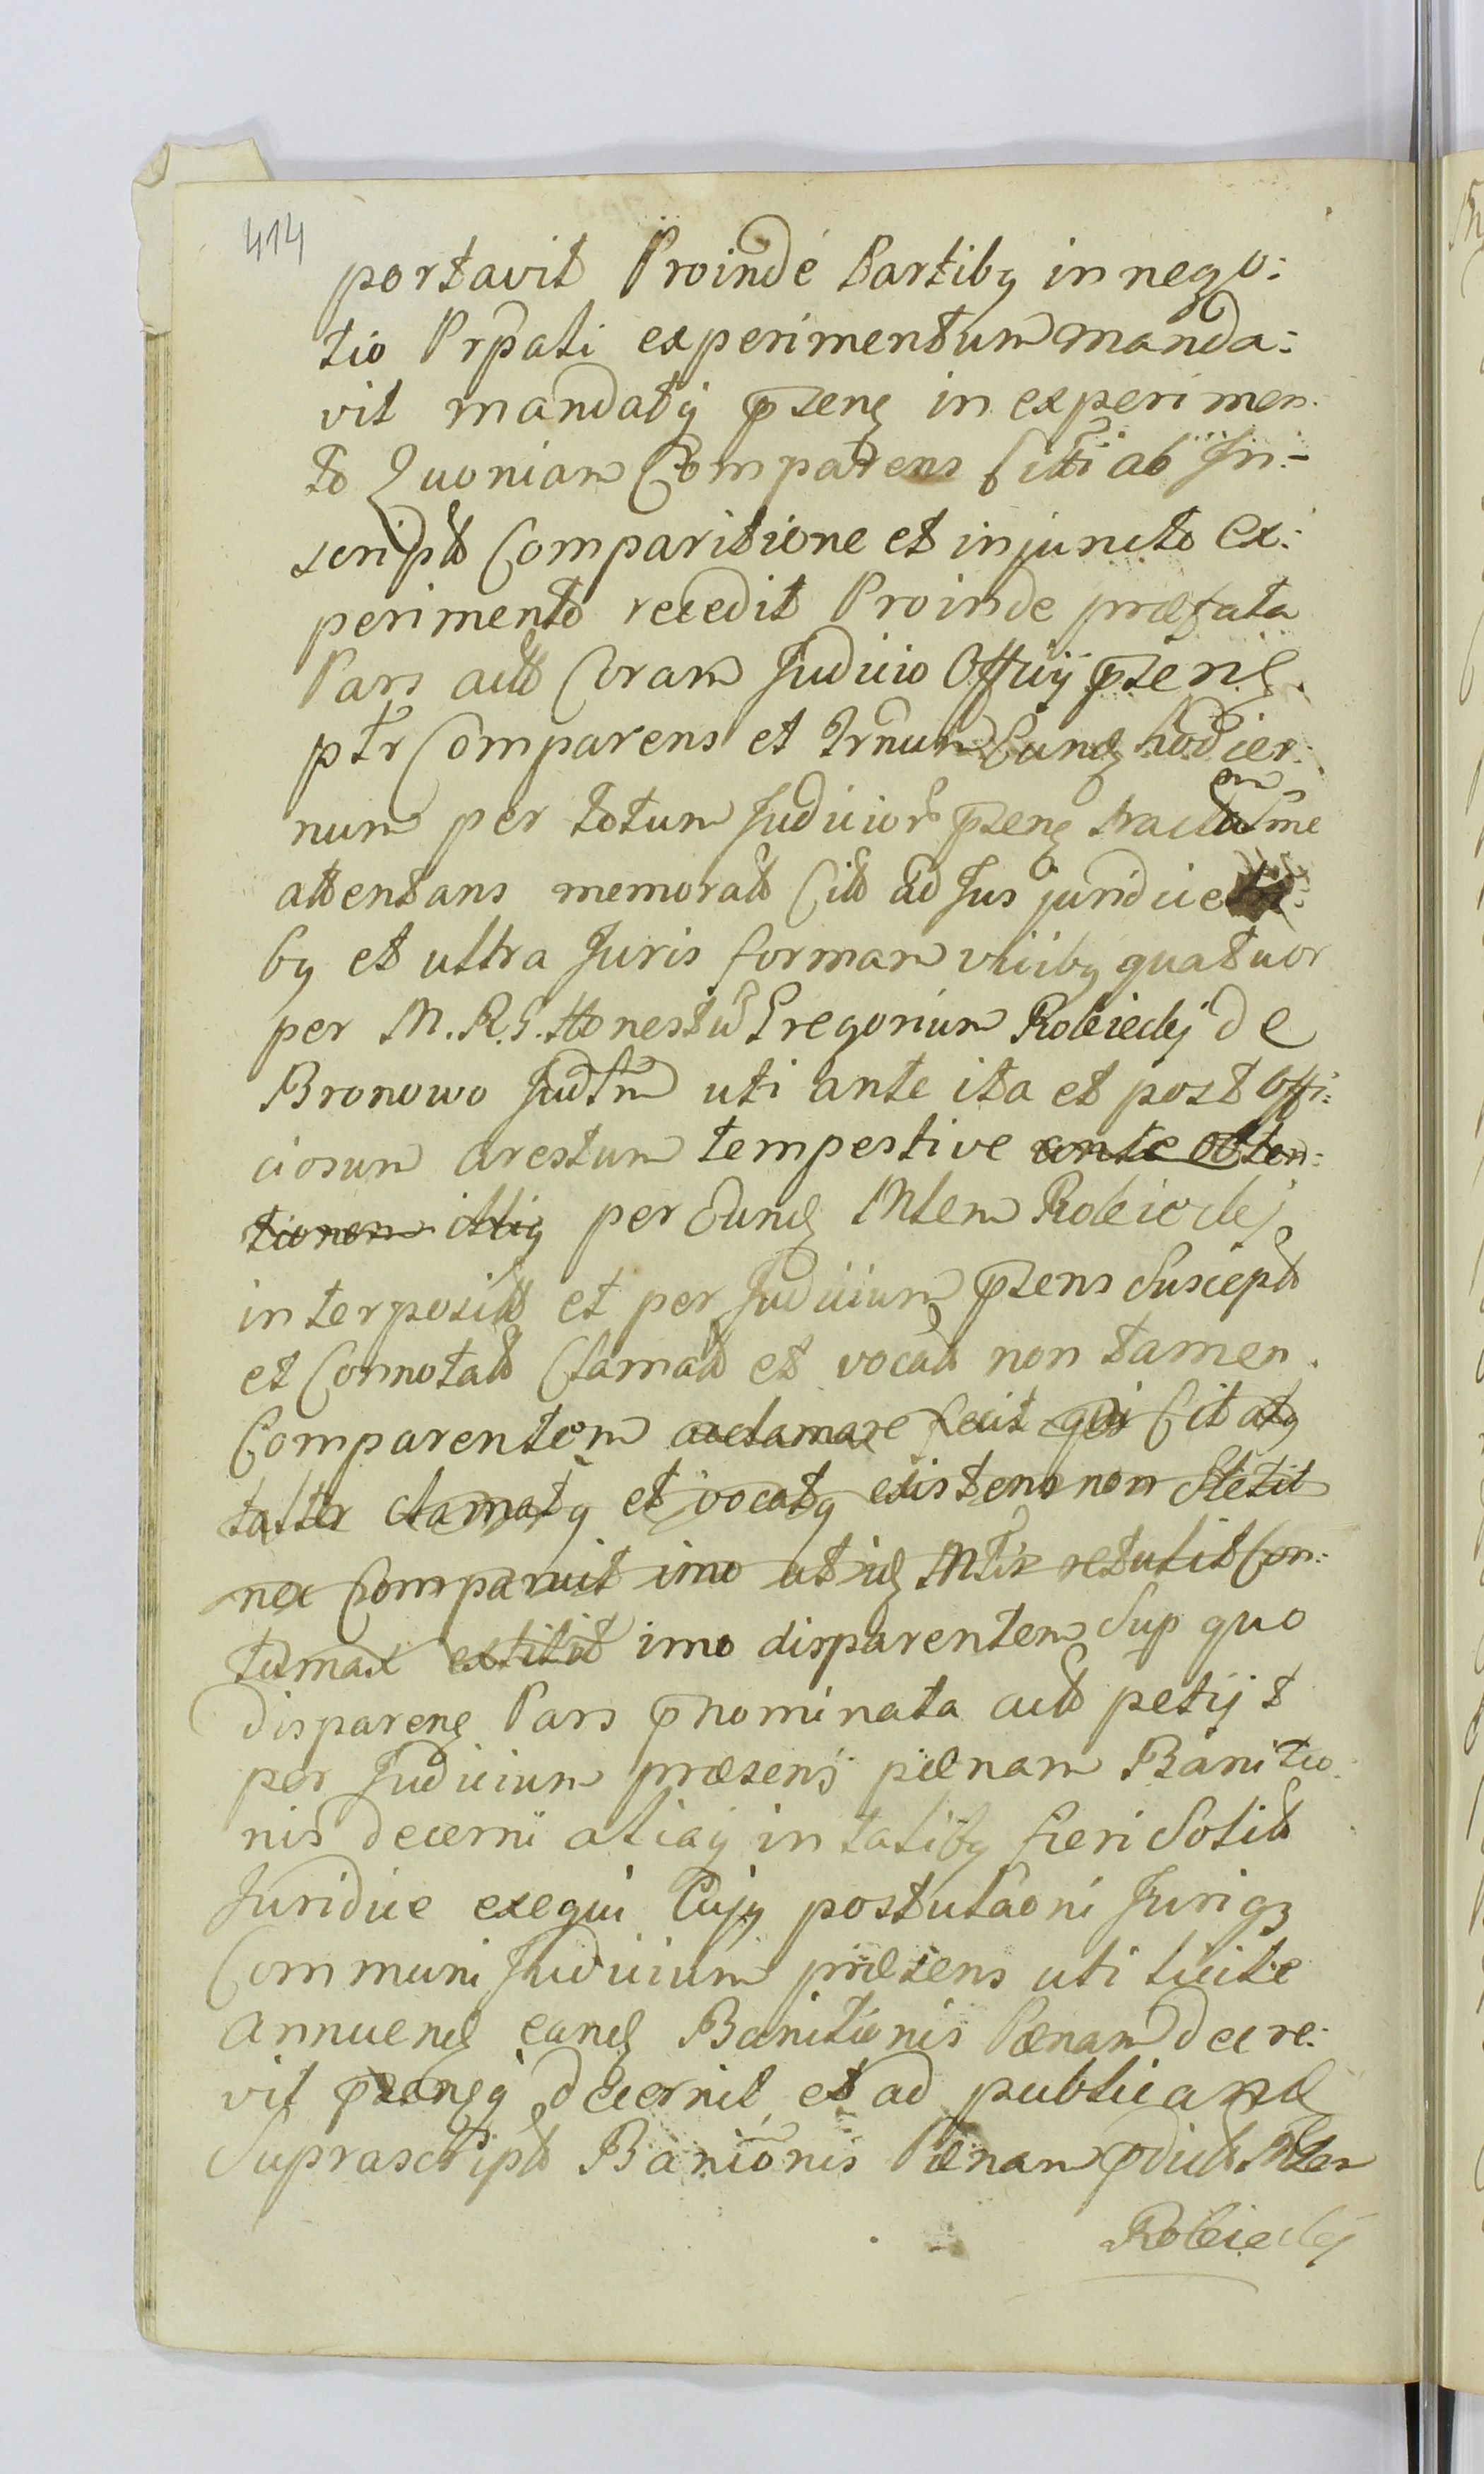 414
portavit Proindé Partiby in nego:
tio Prpati experimentum manda:
vit mandatq pzene in experimen
to Quoniam Comparens Citti ab In:
script Comparitione et injuncto ex:
perimento recedit Proinde præfata
Pars actt Coram Judicio Officij pzens
ptr Comparens et Trnum Eund hodier:
num per totum Judicior pzens tractum me
attentans memoratt Citt ad Jus juridice
by et ultra Juris formam vicibq quatuor
per M. R. G. Honestu Gregorium Robiecky de
Bronowo Judtm uti ante ita et post Offi:
ciosum arestum tempestive ante obten:
tionem illiq per Eund Mlem Robiecky
interpositt et per Judicium pzens Suscept
et Connotatt Clamatt et vocatt non tamen
Comparentem acclamare fecit qui Citatq
taltr clamatq et vocatq existens non Stetit
nec Comparuit imo ut id Mlis retulit Con:
tumax extitit imo disparentem Sup quo
disparene Pars pnominata actt petijt
per Judicium præsens pænam Banitio
nis decerni aliaq in talibq fieri Solitt
Juridice exequi Cujq postulaoni Juriqz
Communi Judicium præsens uti licite
annuend eand Banitionis Pænam decre:
vit pzensq decernit et ad publicand
Suprascript Baniönis Pænam pdict Mlem
Robiecky